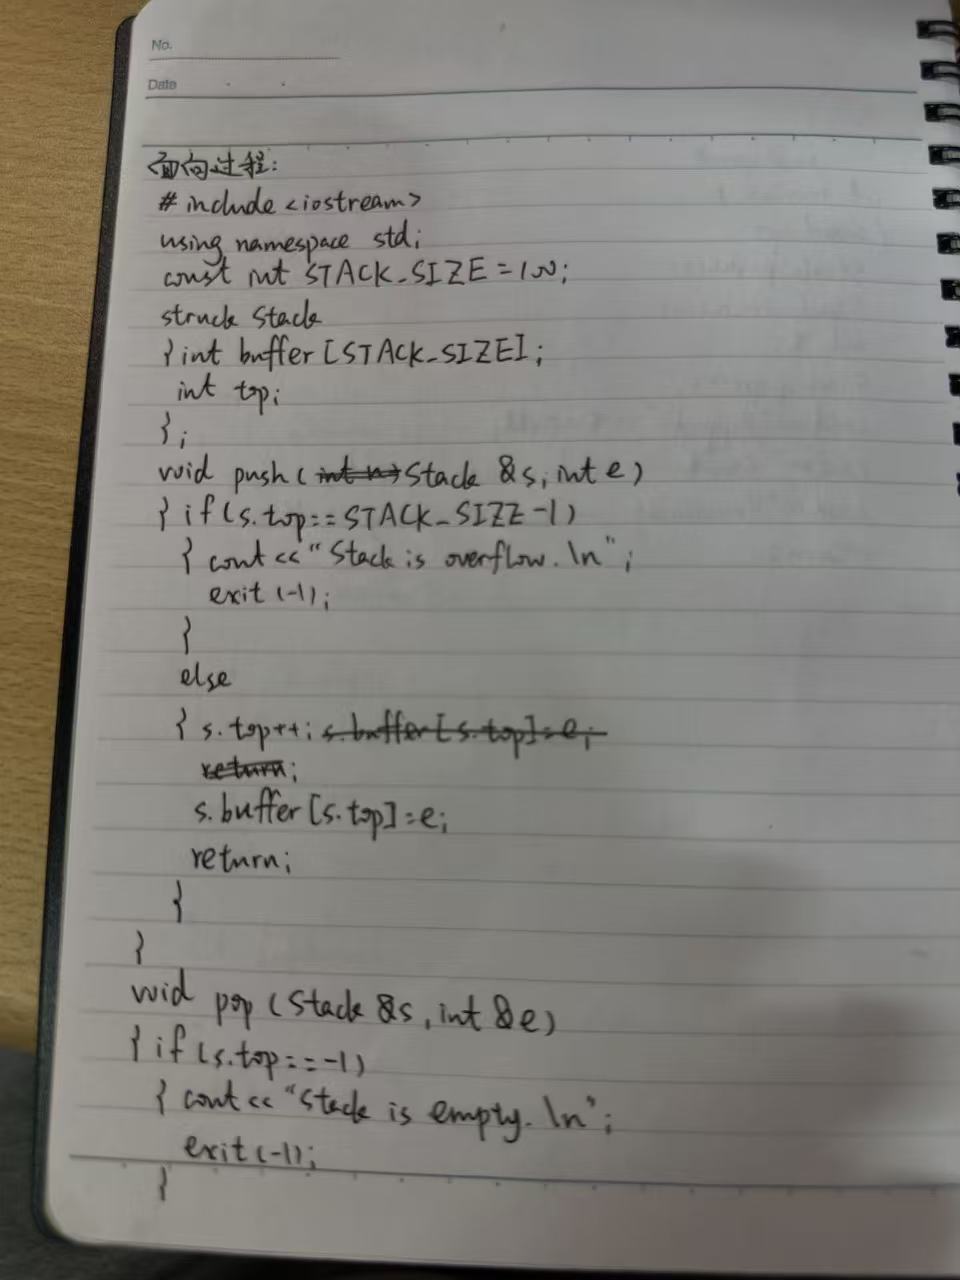 No.
Date
面向过程:
# include <iostream>
using namespace std;
const int STACK_SIZE = 100;
struck Stack
{ int buffer [STACK_SIZE];
int top;
};
void push ( int n) Stack &s, int e)
{ if (s.top == STACK_SIZE -1)
{ cout << "Stack is overflow. \n";
exit (-1);
}
else
{ s.top++; s.buffer[s.top]=e;
return;
s.buffer [s.top] = e;
return;
}
}
void pop (Stack &s, int &e)
{ if (s.top == -1)
{ cout << "Stack is empty. \n";
exit (-1);
}